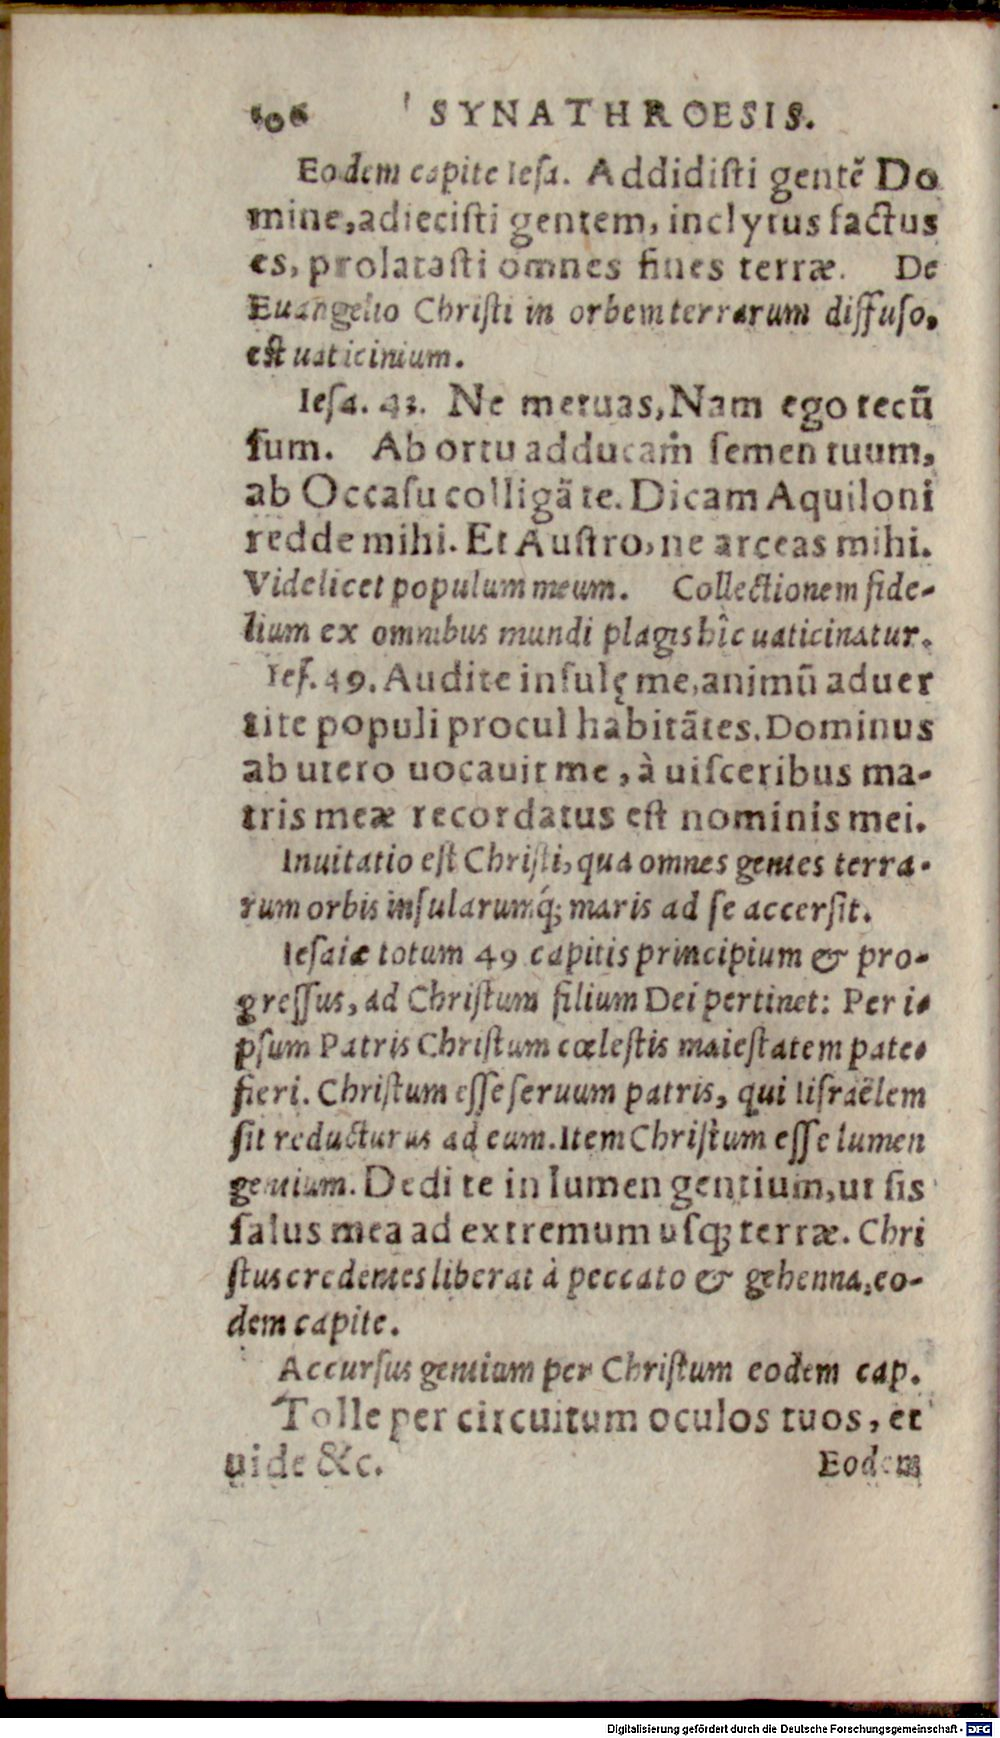 106 SYNATHROESIS.
Eodem capite Iesa. Addidisti gentē Do
mine, adiecisti gentem, inclytus factus
es, prolatasti omnes fines terræ. De
Euangelio Christi in orbem terrarum diffuso,
est uaticinium.
Iesa. 43. Ne metuas, Nam ego tecū
sum. Ab ortu adducam semen tuum,
ab Occasu colligā te. Dicam Aquiloni
redde mihi. Et Austro, ne arceas mihi.
Videlicet populum meum. Collectionem fide-
lium ex omnibus mundi plagis hîc uaticinatur.
Ies. 49. Audite insulę me, animū aduer
tite populi procul habitātes. Dominus
ab utero uocauit me, à uisceribus ma-
tris meæ recordatus est nominis mei.
Inuitatio est Christi, qua omnes gentes terra-
rum orbis insularumq́; maris ad se accersit.
Iesaiæ totum 49 capitis principium & pro-
gressus, ad Christum filium Dei pertinet: Per i-
psum Patris Christum cœlestis maiestatem pate-
fieri. Christum esse seruum patris, qui Iisraëlem
sit reducturus ad eum. Item Christum esse lumen
gentium. Dedi te in lumen gentium, ut sis
salus mea ad extremum usq; terræ. Chri
stus credentes liberat à peccato & gehenna, eo-
dem capite.
Accursus gentium per Christum eodem cap.
Tolle per circuitum oculos tuos, et
uide &c. Eodem
Digitalisierung gefördert durch die Deutsche Forschungsgemeinschaft - DFG